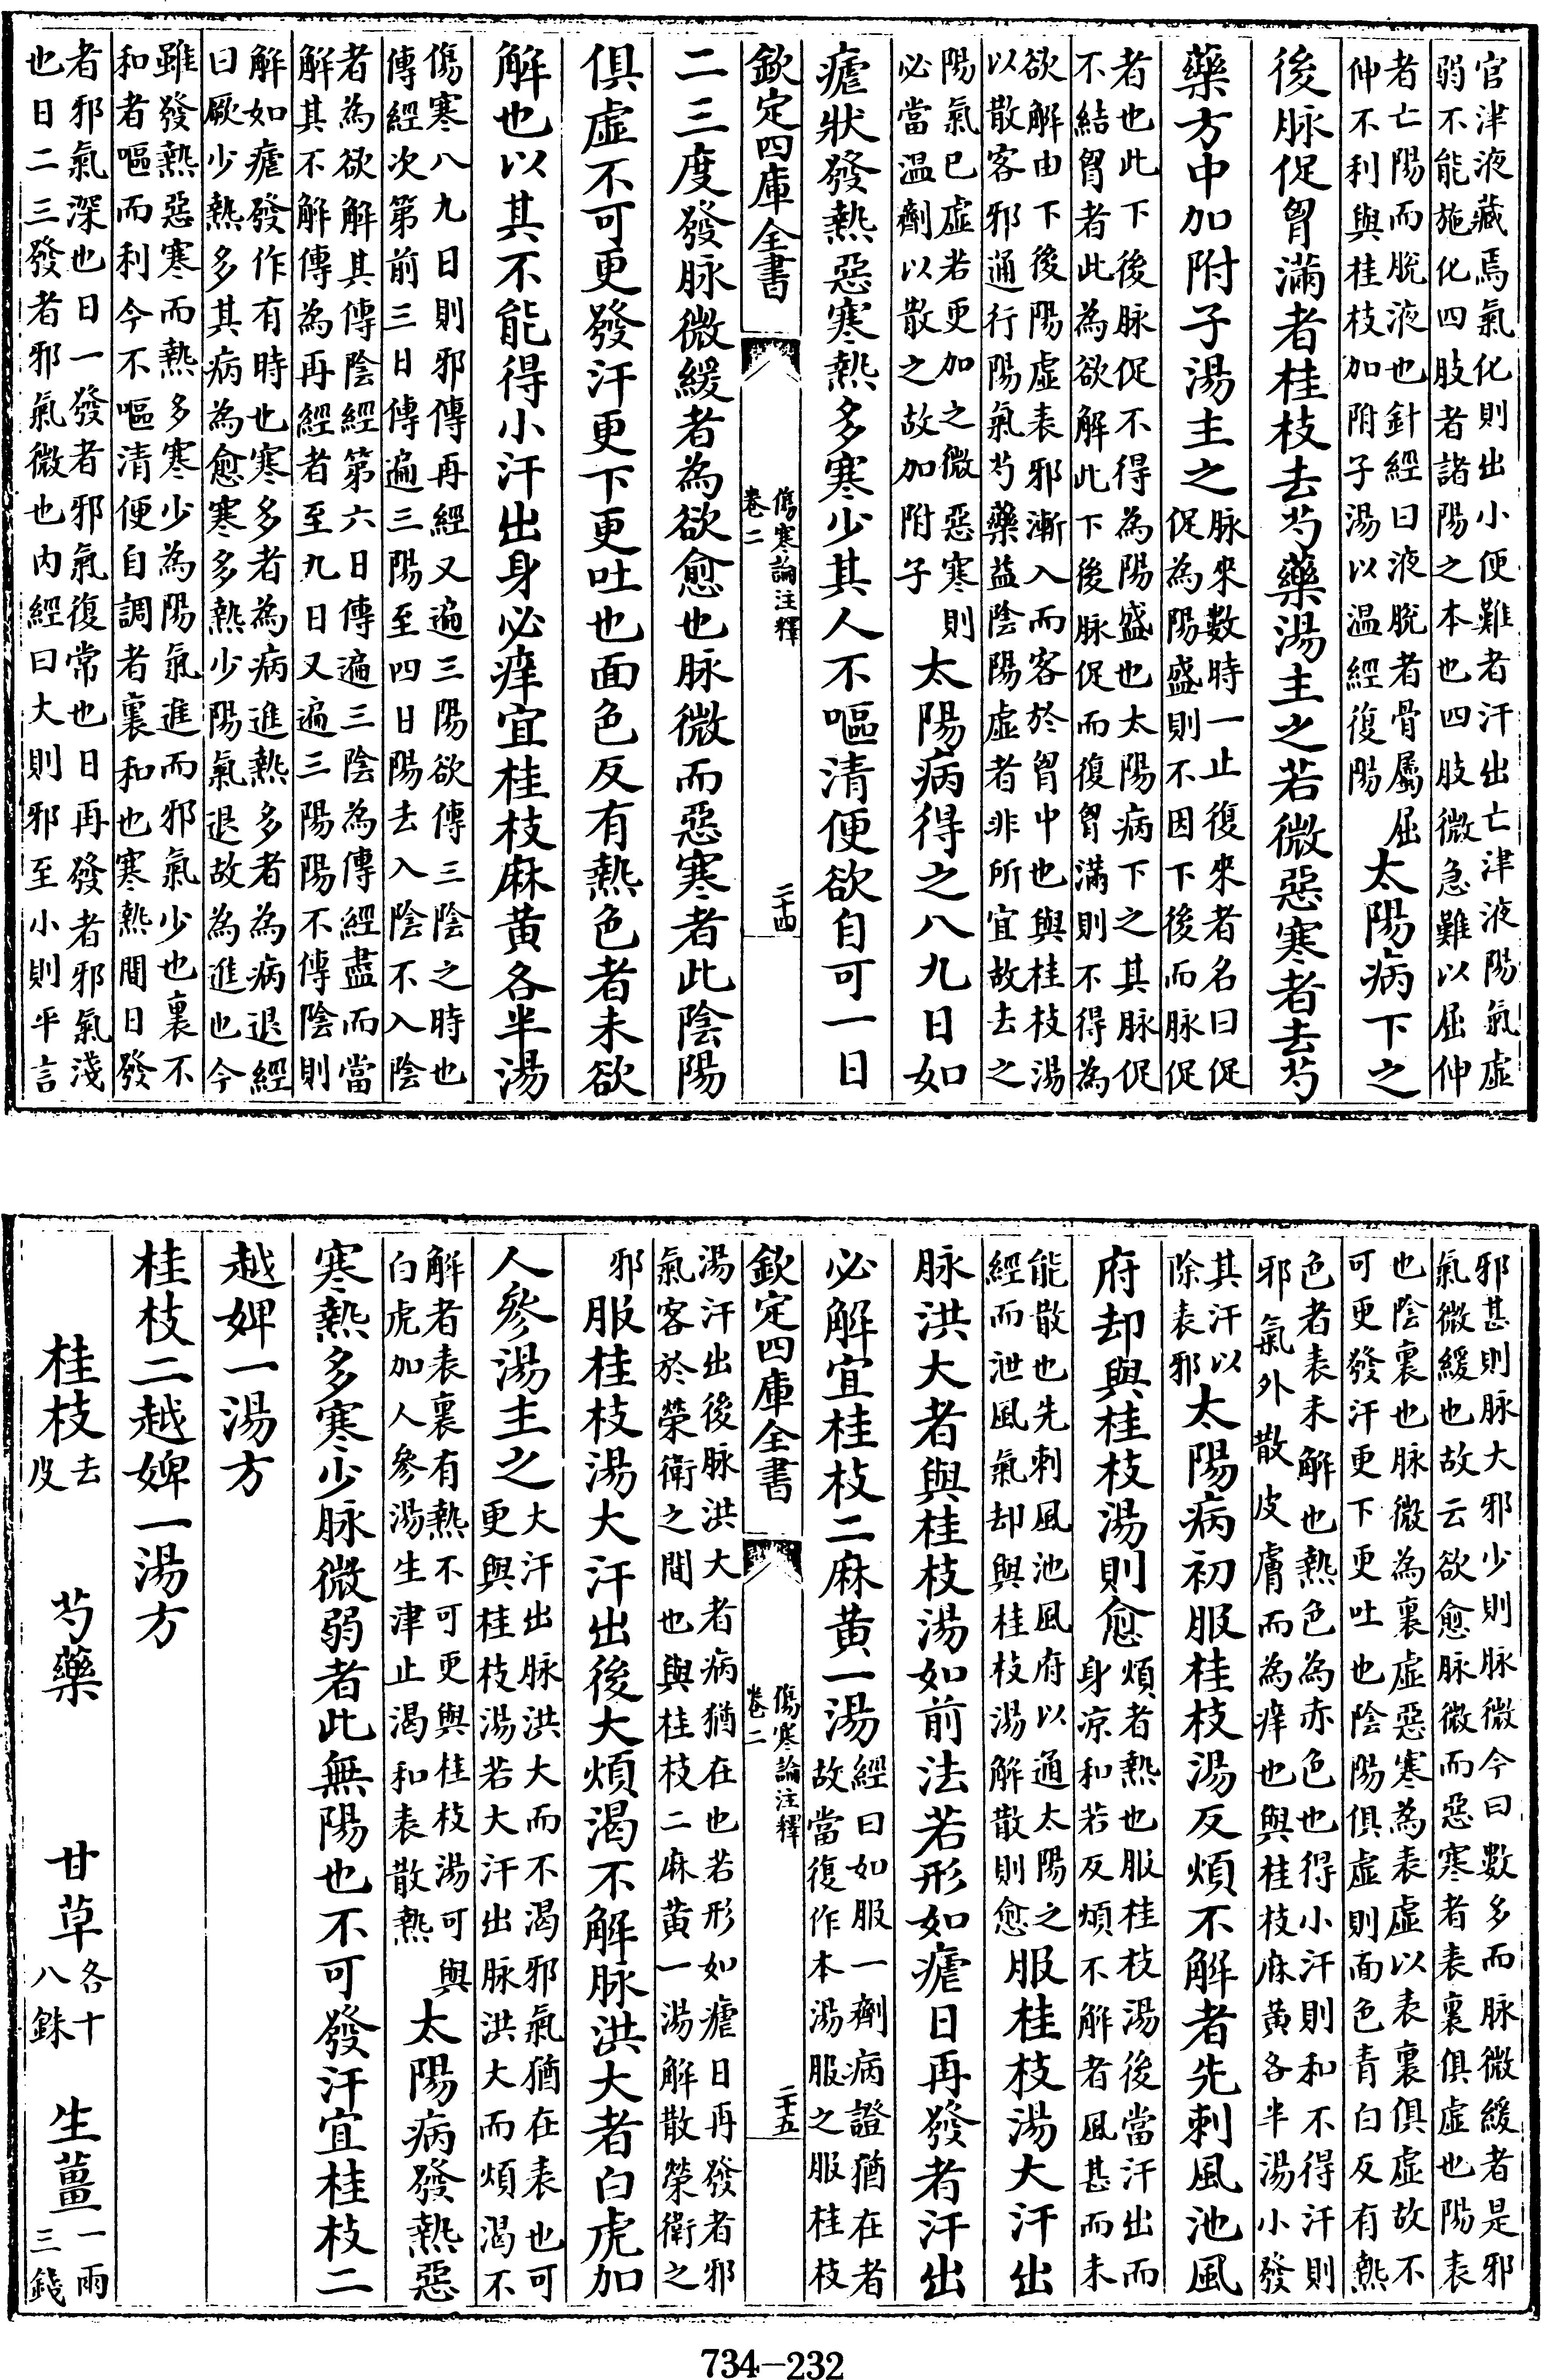 官津液藏焉氣化則出小便難者汗出亡津液陽氣虛
弱不能施化四肢者諸陽之本也四肢微急難以屈伸
者亡陽而脫液也針經曰液脫者骨屬屈
伸不利與桂枝加附子湯以温經復陽
太陽病下之
後脉促胷滿者桂枝去芍藥湯主之若微惡寒者去芍
藥方中加附子湯主之
脉來數時一止復來者名曰促
促為陽盛則不因下後而脉促
者也此下後脉促不得為陽盛也太陽病下之其脉促
不結胷者此為欲解此下後脉促而復胷滿則不得為
欲解由下後陽虛表邪漸入而客於胷中也與桂枝湯
以散客邪通行陽氣芍藥益陰陽虛者非所宜故去之
陽氣已虛若更加之微惡寒則
必當温劑以散之故加附子
太陽病得之八九日如
瘧狀發熱惡寒熱多寒少其人不嘔清便欲自可一日
欽定四庫全書
傷寒論注釋
卷二
二十四
二三度發脉微緩者為欲愈也脉微而惡寒者此陰陽
俱虛不可更發汗更下更吐也面色反有熱色者未欲
解也以其不能得小汗出身必痒宜桂枝麻黃各半湯
傷寒八九日則邪傳再經又遍三陽欲傳三陰之時也
傳經次第前三日傳遍三陽至四日陽去入陰不入陰
者為欲解其傳陰經第六日傳遍三陰為傳經盡而當
解其不解傳為再經者至九日又遍三陽陽不傳陰則
解如瘧發作有時也寒多者為病進熱多者為病退經
曰厥少熱多其病為愈寒多熱少陽氣退故為進也今
雖發熱惡寒而熱多寒少為陽氣進而邪氣少也裏不
和者嘔而利今不嘔清便自調者裏和也寒熱間日發
者邪氣深也日一發者邪氣復常也日再發者邪氣淺
也日二三發者邪氣微也内經曰大則邪至小則平言
邪甚則脉大邪少則脉微今日數多而脉微緩者是邪
氣微緩也故云欲愈脉微而惡寒者表裏俱虛也陽表
也陰裏也脉微為裏虛惡寒為表虛以表裏俱虛故不
可更發汗更下更吐也陰陽俱虛則面色青白反有熱
色者表未解也熱色為赤色也得小汗則和不得汗則
邪氣外散皮膚而為痒也與桂枝麻黃各半湯小發
其汗以
除表邪
太陽病初服桂枝湯反煩不解者先刺風池風
府却與桂枝湯則愈
煩者熱也服桂枝湯後當汗出而
身凉和若反煩不解者風甚而未
能散也先刺風池風府以通太陽之
經而泄風氣却與桂枝湯解散則愈
服桂枝湯大汗出
脉洪大者與桂枝湯如前法若形如瘧日再發者汗出
必解宜桂枝二麻黃一湯
經曰如服一劑病證猶在者
故當復作本湯服之服桂枝
欽定四庫全書
傷寒論注釋
卷二
二十五
湯汗出後脉洪大者病猶在也若形如瘧日再發者邪
氣客於榮衛之間也與桂枝二麻黃一湯解散榮衛之
邪
服桂枝湯大汗出後大煩渴不解脉洪大者白虎加
人參湯主之
大汗出脉洪大而不渴邪氣猶在表也可
更與桂枝湯若大汗出脉洪大而煩渴不
解者表裏有熱不可更與桂枝湯可與
白虎加人參湯生津止渴和表散熱
太陽病發熱惡
寒熱多寒少脉微弱者此無陽也不可發汗宜桂枝二
越婢一湯方
桂枝二越婢一湯方
桂枝去皮　芍藥　甘草各十八銖　生薑一兩三錢
734-232